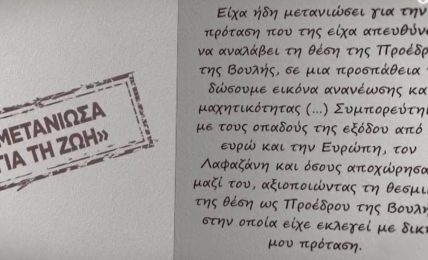 ΜΕΤΑΝΙΩΣΑ
ΓΙΑ ΤΗ ΖΩΗ»
Είχα ήδη μετανιώσει για την
πρόταση που της είχα απευθύν
να αναλάβει τη θέση της Προέδρ
της Βουλής, σε μια προσπάθεια
δώσουμε εικόνα ανανέωσης κα
μαχητικότητας (...) Συμπορεύτη
με τους οπαδούς της εξόδου από
ευρώ και την Ευρώπη, τον
Λαφαζάνη και όσους αποχώρησα
μαζί του, αξιοποιώντας τη θεσμι
της θέση ως Προέδρου της Βουλ
στην οποία είχε εκλεγεί με δικ
μου πρόταση.